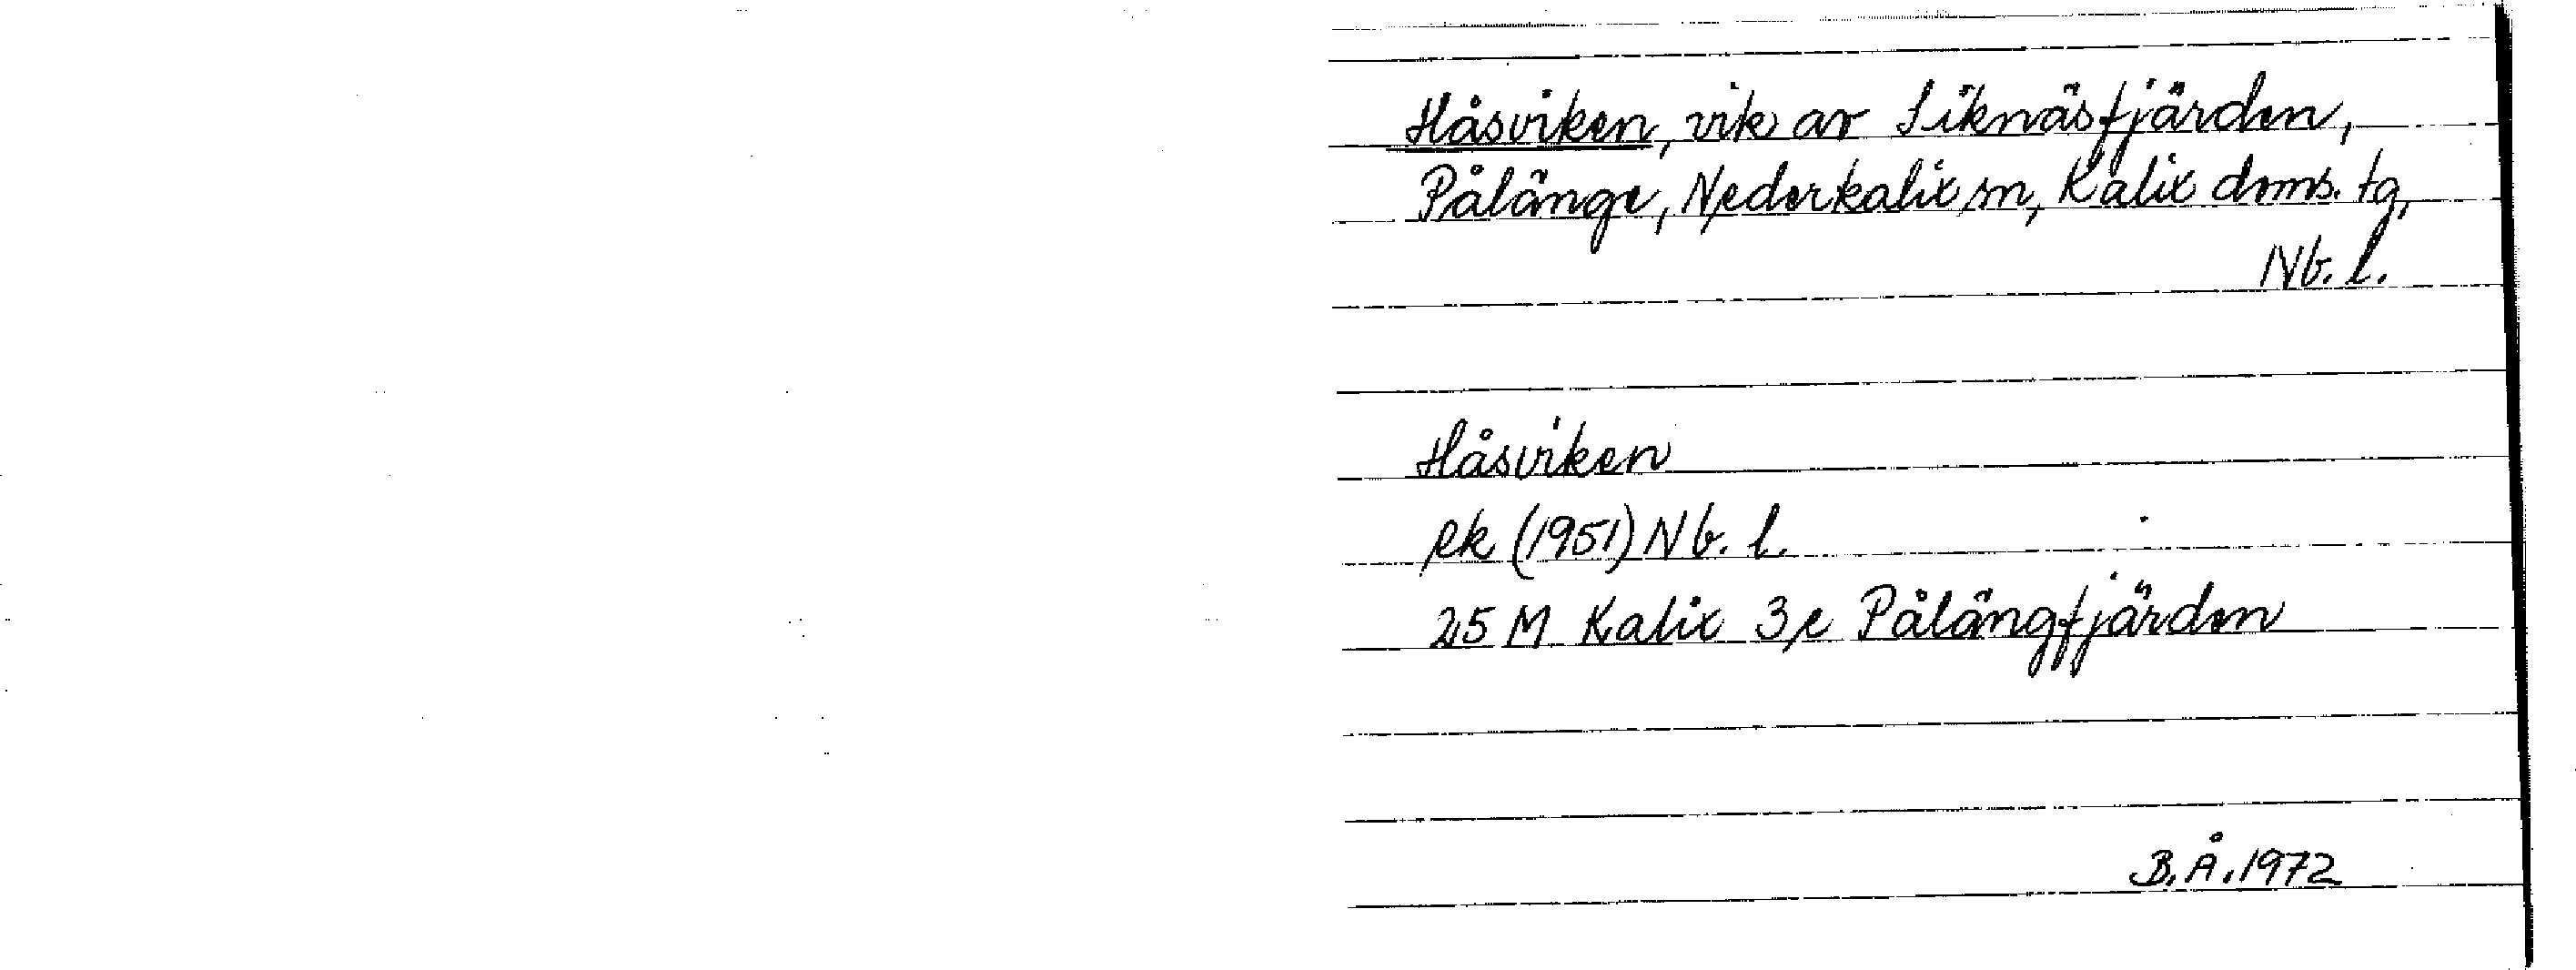 Håsviken, vik av Siknäsfjärden,
Pålänge, Nederkalix sn, Kalix doms. tg,
Nb. l.
Håsviken
Rk (1951) Nb. l.
25 M Kalix 3e Pålängfjärden
B.Å. 1972